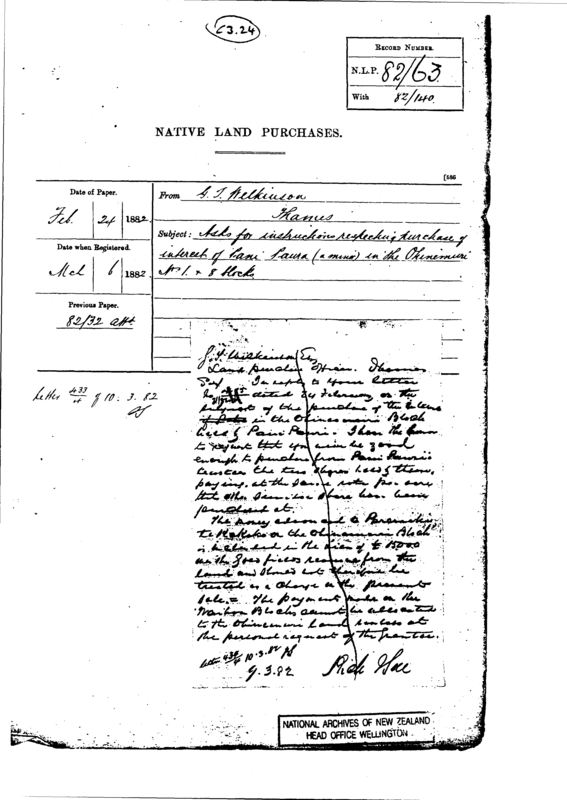 C3.24
RECORD NUMBER.
N.L.P. 82/63
With 82/140.
NATIVE LAND PURCHASES.
Date of Paper.
Feb. 24 1882
Date when Registered.
Mch 6 1882
Previous Paper.
82/32 att.
From G. T. Wilkinson
Thames
Subject: Asks for instructions respecting purchase of
interest of (a minor) in the Ohinemuri
Nos 1. & 8 blocks
Letter 433/4 of 10.3.82
G. T. Wilkinson Esq
Land Purchase Officer. Thames
Sir In reply to your letter
dated 24 February on the
subject of the purchase of the
in the Ohinemuri Block
I have the honor
to request that you will be good
enough to purchase from
trustees the two shares held by them,
paying at the same rate per acre
that other shares have been
purchased at.
The money advanced to
on the Ohinemuri Block
is included in the lien of £15000
on the Goldfields revenue from the
land and should not therefore be
treated as a charge on the present
sale. The payment made on the
Blocks cannot be
to the Ohinemuri Land unless at
the personal request of the grantee.
letter 433/4 10.3.82
9.3.82
NATIONAL ARCHIVES OF NEW ZEALAND
HEAD OFFICE WELLINGTON